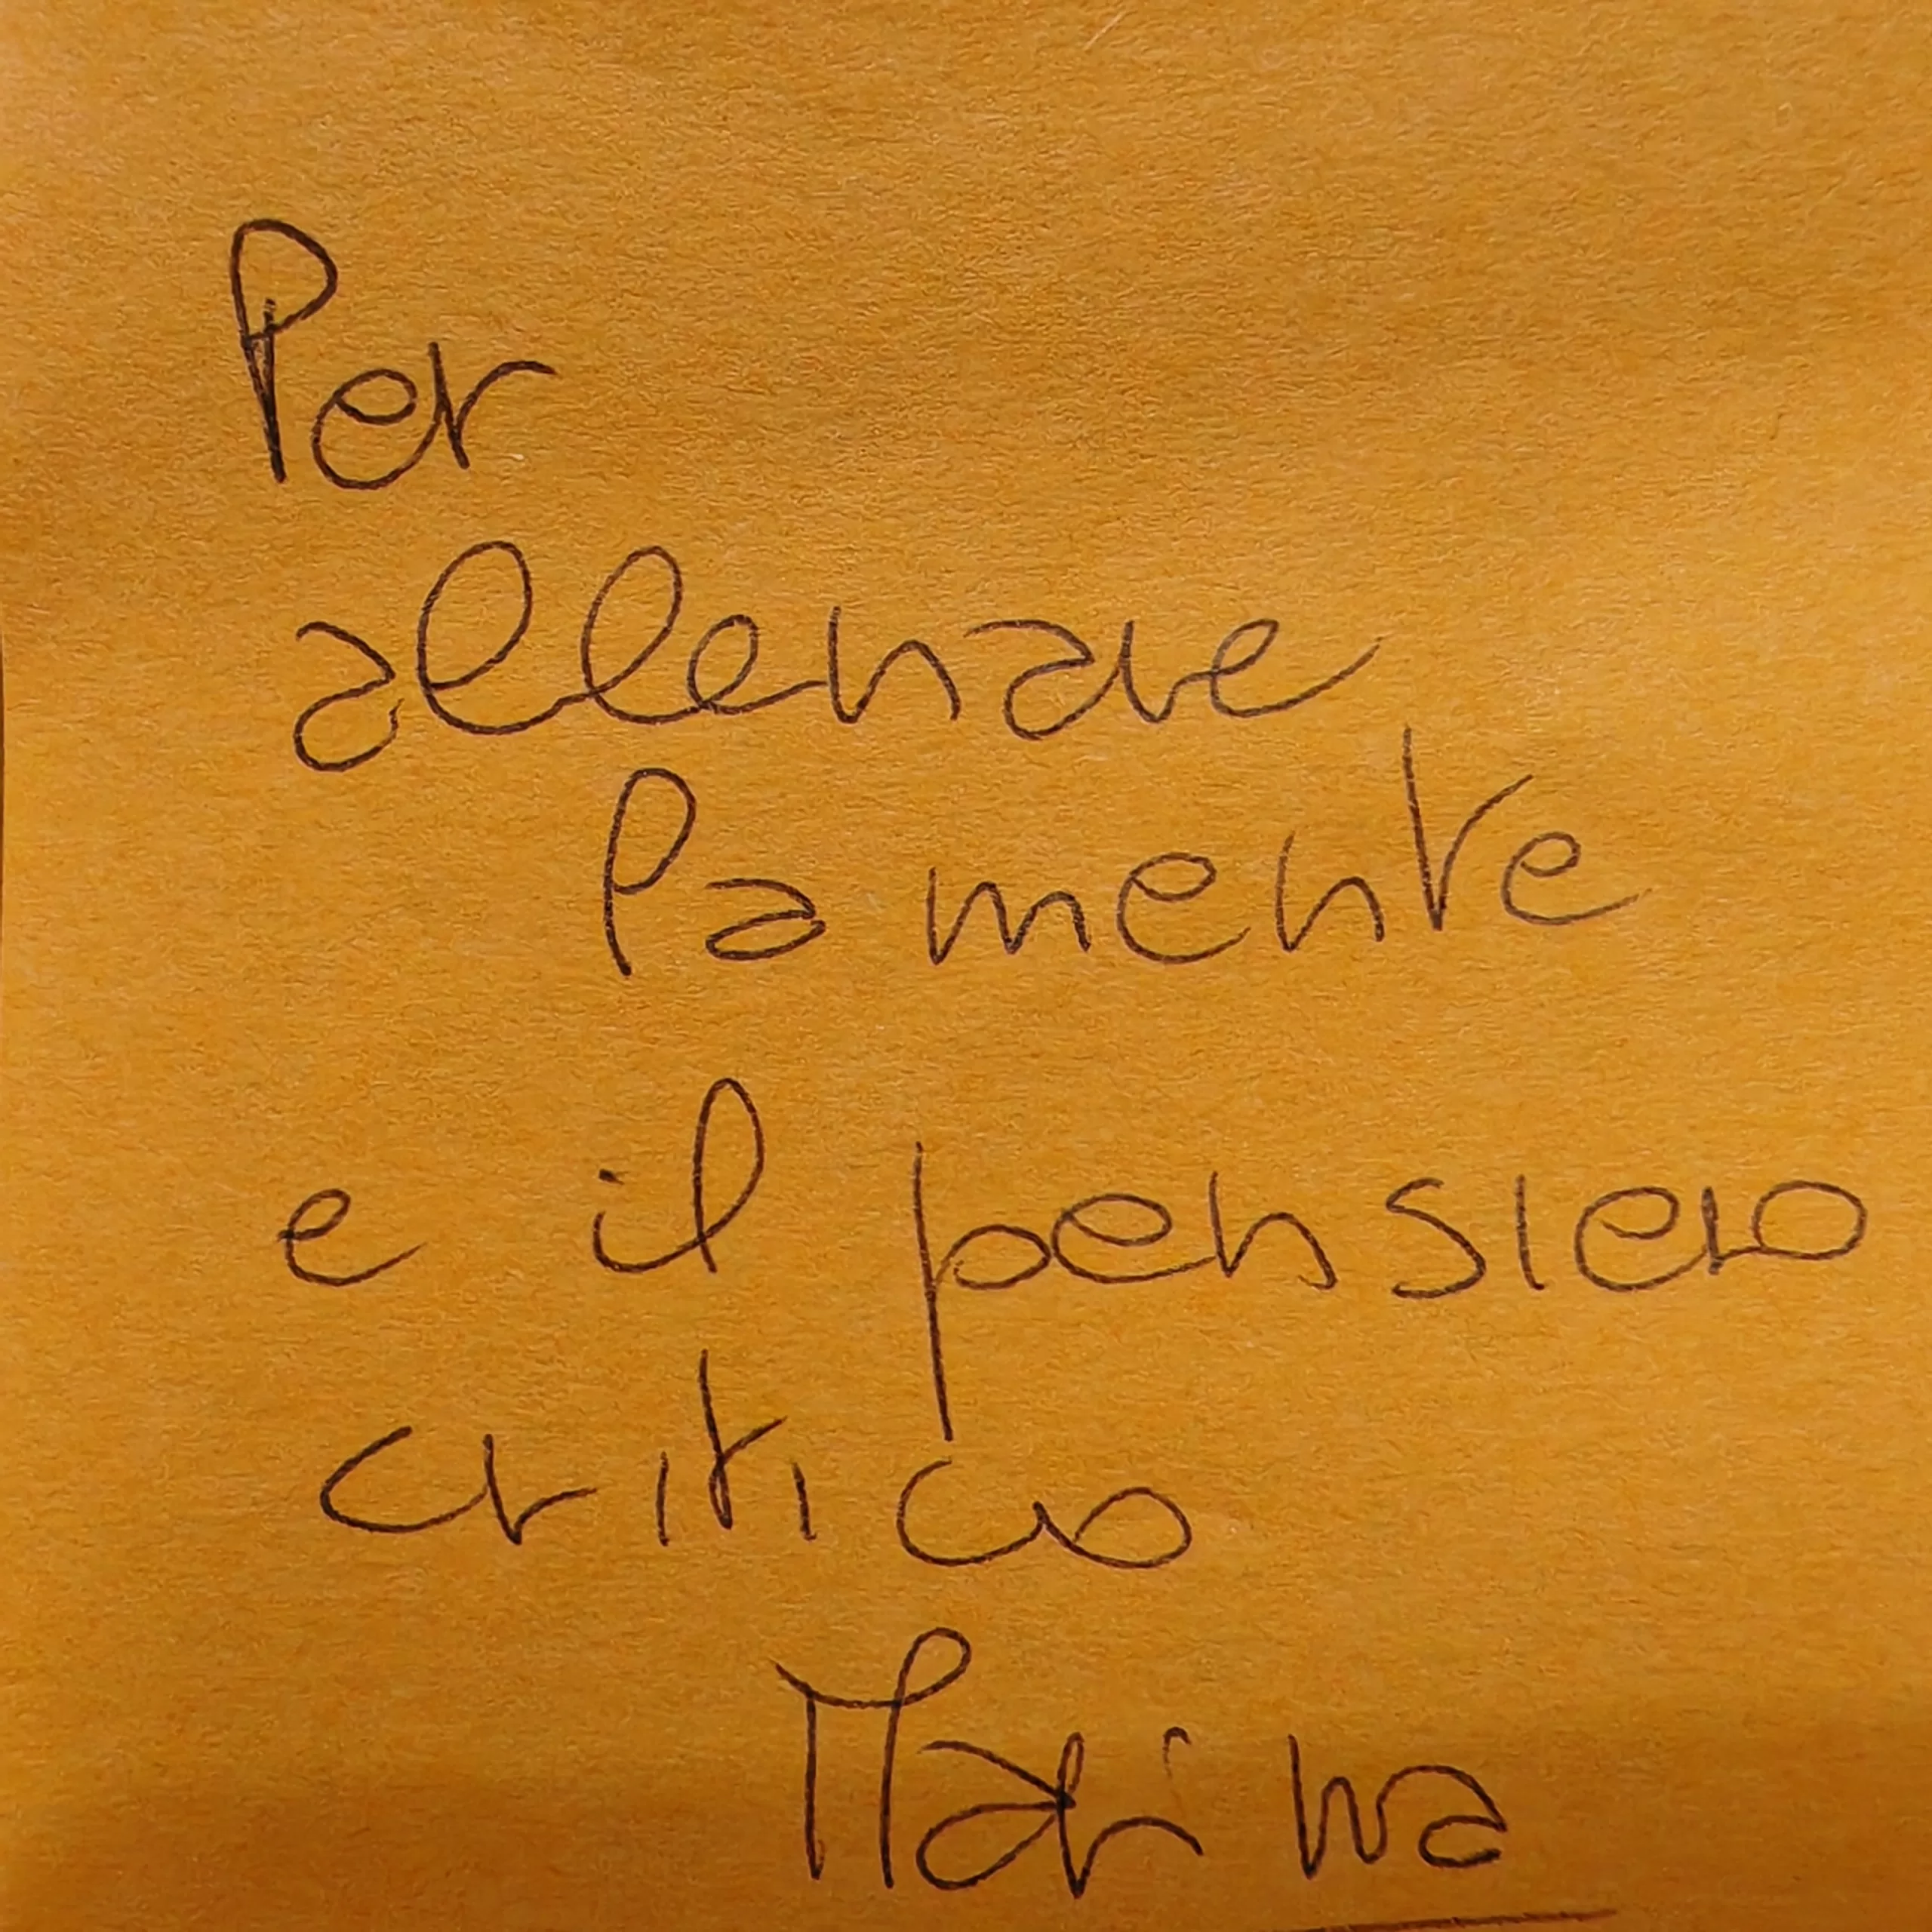 Per
allenare
la mente
e il pensiero
critico
Marina